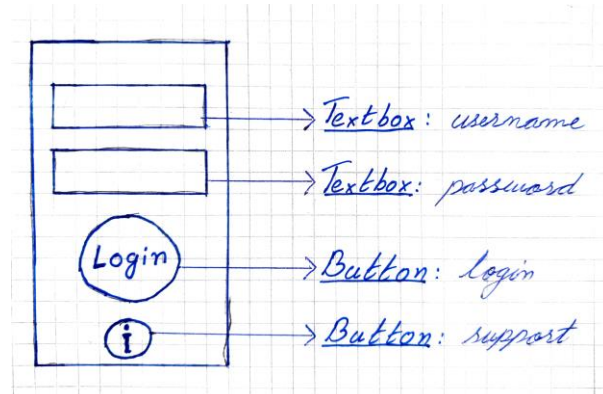 Textbox: username
Textbox: password
Login
Button: login
i
Button: support